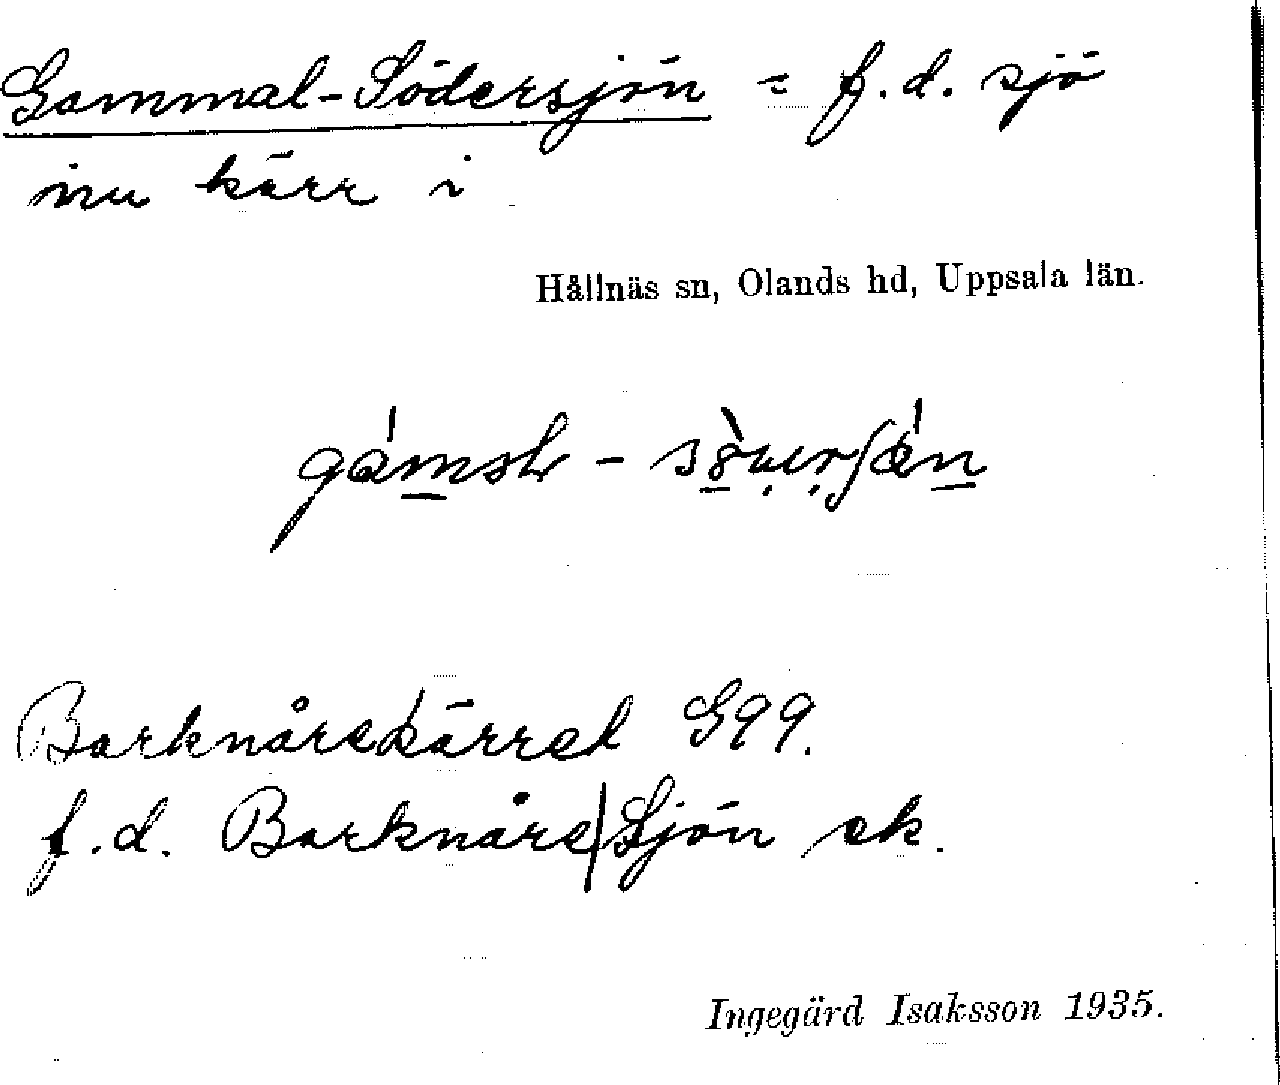 Gammal-Södersjön = f.d. sjö
nu kärr i
Hållnäs sn, Olands hd, Uppsala län.
Barknårekärret G99.
f.d. Barknåre|Sjön ek.
Ingegärd Isaksson 1935.